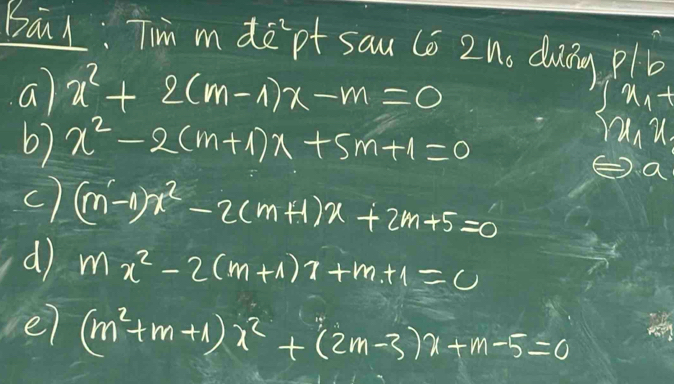 Bài 1 : Tìm m để pt sau có 2 n₀ dương p/b
a) x² + 2(m-1)x - m = 0
b) x² - 2(m+1)x + 5m + 1 = 0
c) (m-1)x² - 2(m+1)x + 2m + 5 = 0
d) mx² - 2(m+1)x + m + 1 = 0
e) (m² + m + 1)x² + (2m-3)x + m - 5 = 0
{ x₁ +
x₁ x₂
⇔ a